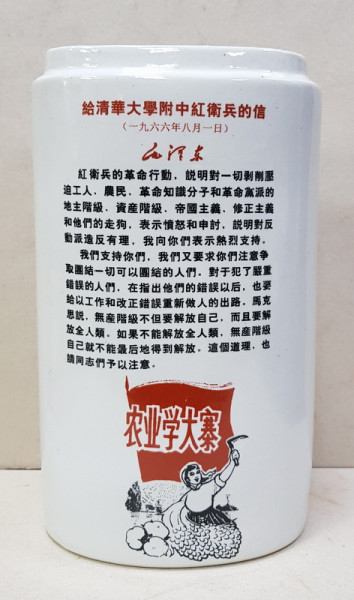 給清華大學附中紅衛兵的信
(一九六六年八月一日)
毛澤東
紅衛兵的革命行動，説明對一切剝削壓
迫工人、農民、革命知識分子和革命黨派的
地主階級、資産階級、帝國主義、修正主義
和他們的走狗，表示憤怒和申討，説明對反
動派造反有理，我向你們表示熱烈支持。
我們支持你們，我們又要求你們注意爭
取團結一切可以團結的人們。對于犯了嚴重
錯誤的人們，在指出他們的錯誤以后，也要
給以工作和改正錯誤重新做人的出路。馬克
思説，無産階級不但要解放自己，而且要解
放全人類。如果不能解放全人類，無産階級
自己就不能最后地得到解放。這個道理，也
請同志們予以注意。
农业学大寨